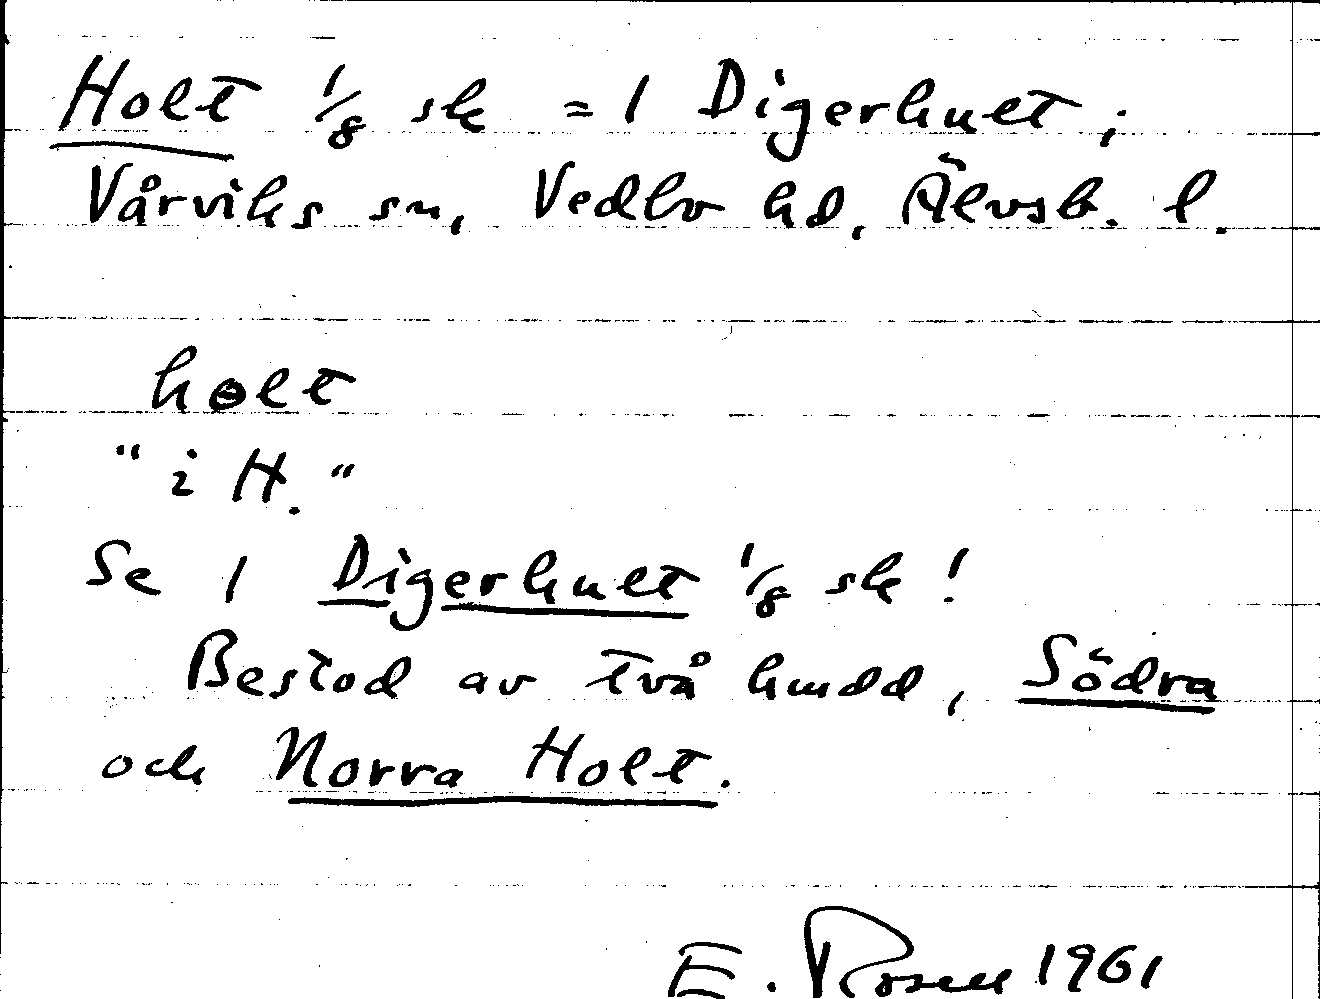 Holt 1/8 sk = 1 Digerhult,
Vårviks sn, Vedbo hd, Älvsb. l.
holt
"i H."
Se 1 Digerhult 1/8 sk!
Bestod av två hmdd, Södra
och Norra Holt.
E. Rosell 1961